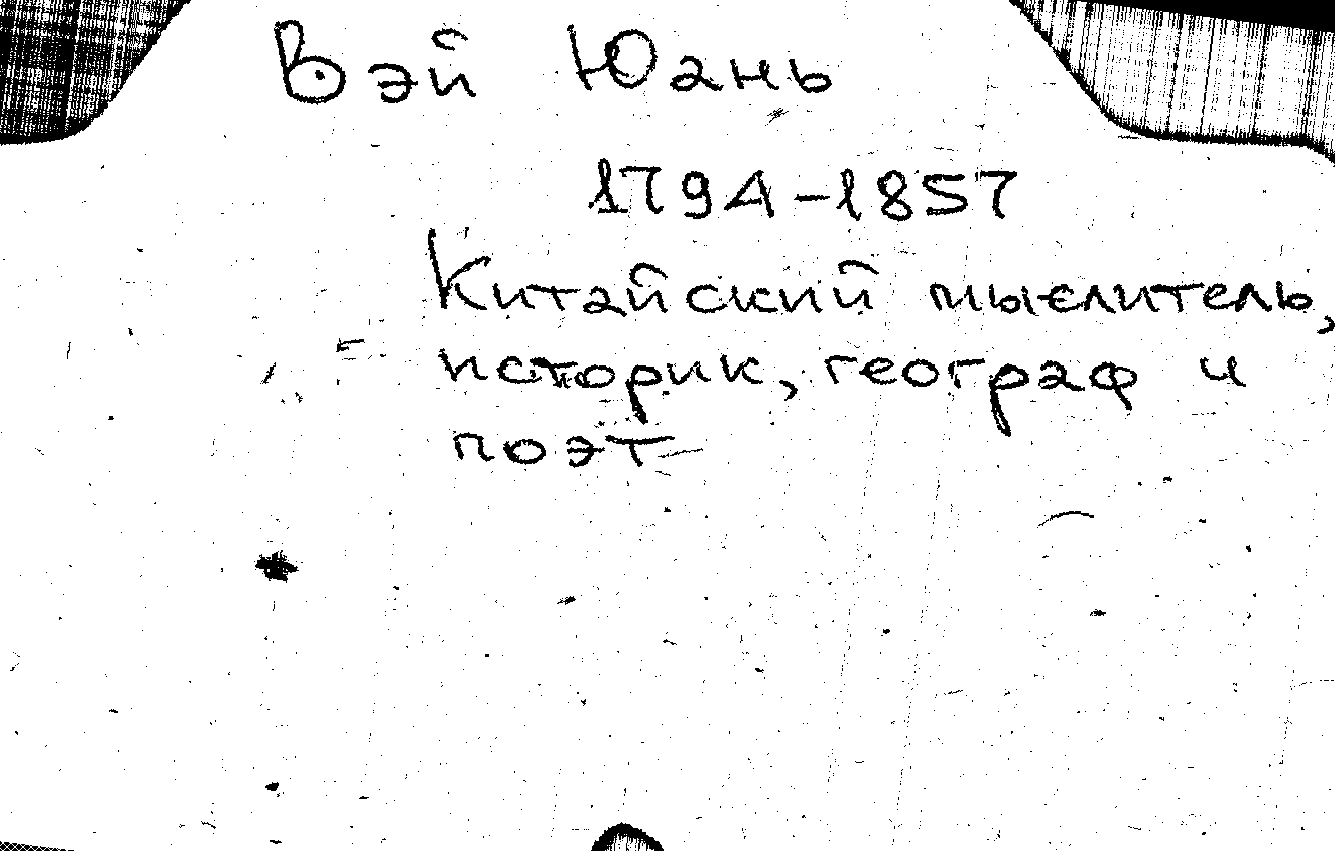 Вэй Юань
1794-1857
Китайский мыслитель,
историк, географ и
поэт